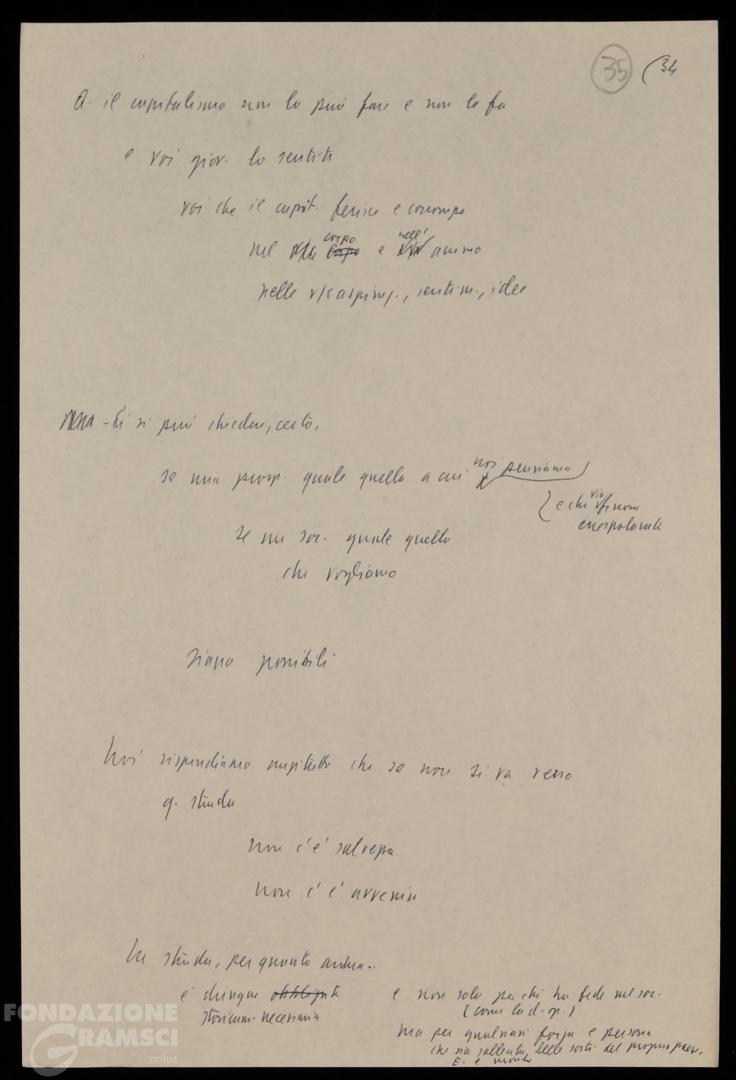 35 (34
Q. il capitalismo non lo può fare e non lo fa
e voi giov. lo sentite
voi che il capit. ferisce e corrompe
nel corpo e nell' animo
nelle aspiraz., sentim., idee
- Ci si può chiedere, certo,
se una prosp. quale quella a cui noi pensiamo
e chi via
se un soc. quale quello
che vogliamo
siano possibili
Noi rispondiamo anzitutto che se non si va verso
q. strada
non c'è salvezza
non c'è avvenire
La strada, per quanto ardua..
è dunque
storicam. necessaria
e non solo per chi ha fede nel soc.
(come la cl. op.)
ma per qualsiasi forza e persona
che sia sollecita delle sorti del proprio paese,
E. e mondo
FONDAZIONE
GRAMSCI
onlus